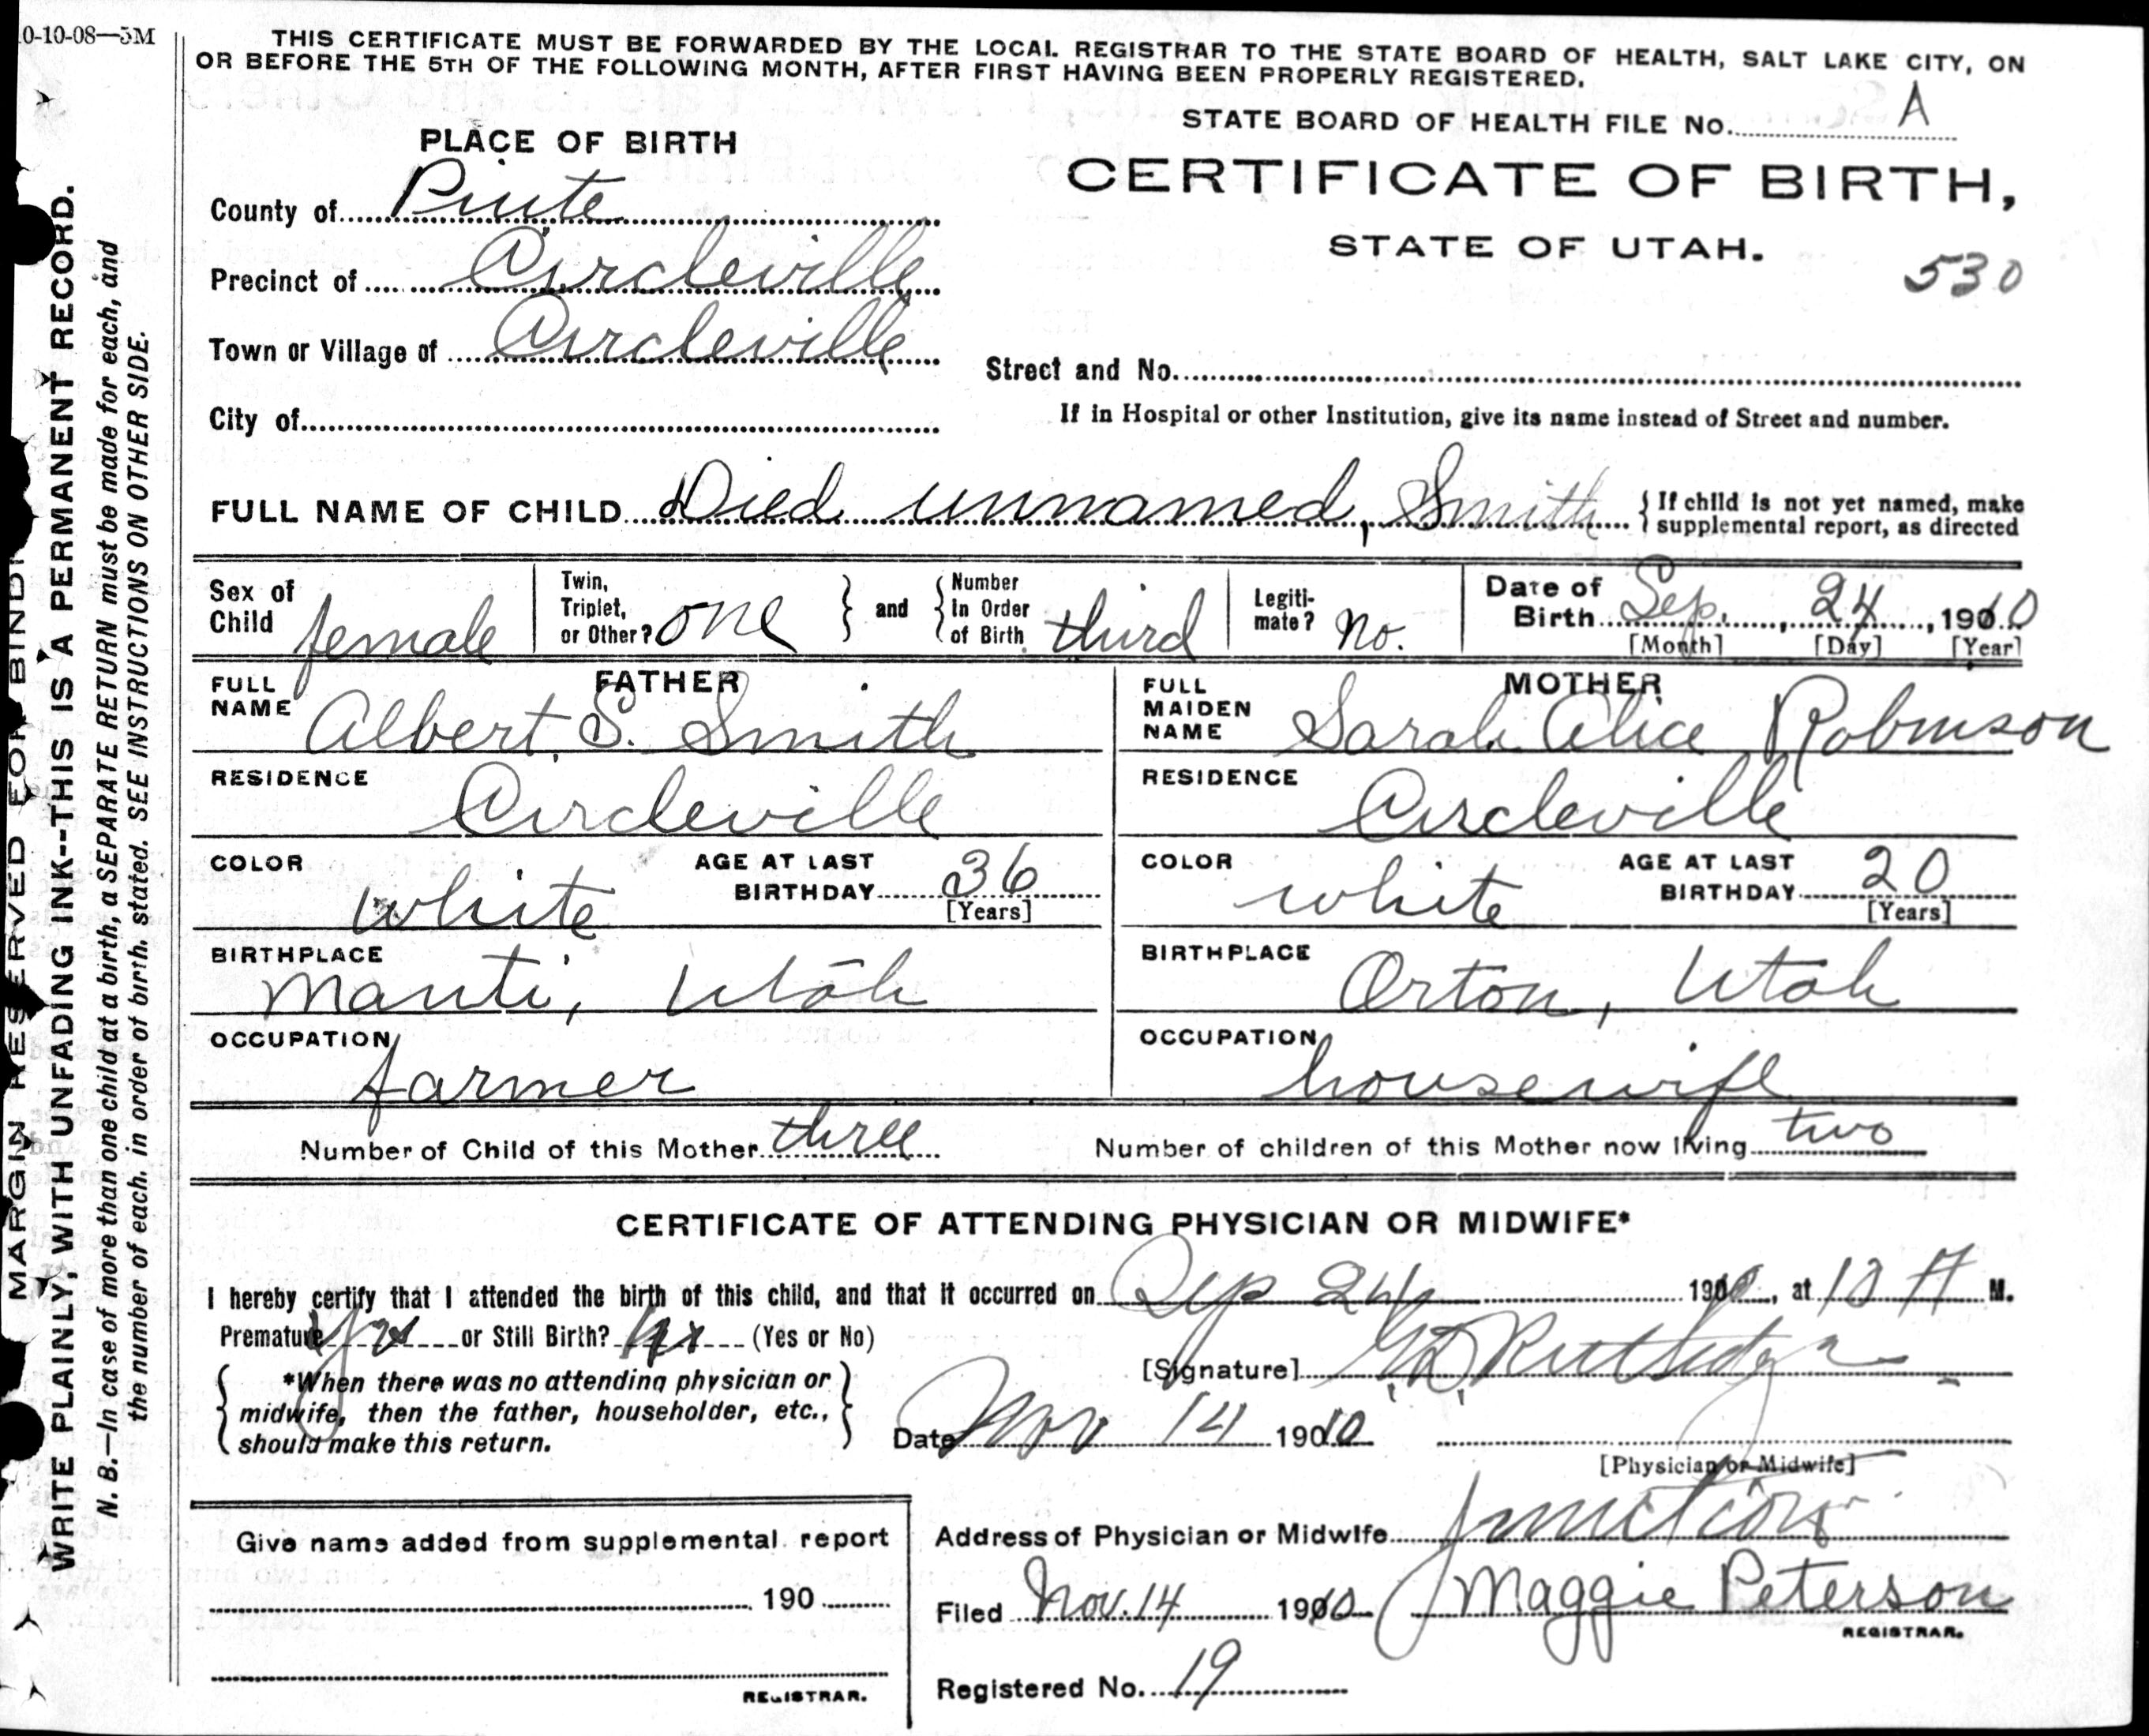 0-10-08—5M
THIS CERTIFICATE MUST BE FORWARDED BY THE LOCAL REGISTRAR TO THE STATE BOARD OF HEALTH, SALT LAKE CITY, ON
OR BEFORE THE 5TH OF THE FOLLOWING MONTH, AFTER FIRST HAVING BEEN PROPERLY REGISTERED.
STATE BOARD OF HEALTH FILE No. A
PLACE OF BIRTH
CERTIFICATE OF BIRTH,
STATE OF UTAH.
530
County of Piute
Precinct of Circleville
Town or Village of Circleville
Street and No.
City of
If in Hospital or other Institution, give its name instead of Street and number.
FULL NAME OF CHILD Died unnamed, Smith { If child is not yet named, make
supplemental report, as directed
Sex of Child female
Twin, Triplet, or Other? one } and { Number In Order of Birth third
Legitimate? no.
Date of Birth Sep. 24, 1910
[Month] [Day] [Year]
FATHER
FULL NAME Albert S. Smith
RESIDENCE Circleville
COLOR white AGE AT LAST BIRTHDAY 36
[Years]
BIRTHPLACE Manti, Utah
OCCUPATION farmer
MOTHER
FULL MAIDEN NAME Sarah Alice Robinson
RESIDENCE Circleville
COLOR white AGE AT LAST BIRTHDAY 20
[Years]
BIRTHPLACE Orton, Utah
OCCUPATION housewife
Number of Child of this Mother three
Number of children of this Mother now living two
CERTIFICATE OF ATTENDING PHYSICIAN OR MIDWIFE*
I hereby certify that I attended the birth of this child, and that it occurred on Sep 24 1910, at 12 A M.
Premature yes or Still Birth? (Yes or No)
[Signature] Rutledge
{ *When there was no attending physician or
midwife, then the father, householder, etc.,
should make this return. }
Date Nov 14 1910
[Physician or Midwife]
Give name added from supplemental report
190
REGISTRAR.
Address of Physician or Midwife Junction
Filed Nov. 14 1910 Maggie Peterson
REGISTRAR.
Registered No. 19
MARGIN RESERVED FOR BINDI
WRITE PLAINLY, WITH UNFADING INK--THIS IS A PERMANENT RECORD.
N. B.—In case of more than one child at a birth, a SEPARATE RETURN must be made for each, and
the number of each, in order of birth, stated. SEE INSTRUCTIONS ON OTHER SIDE.